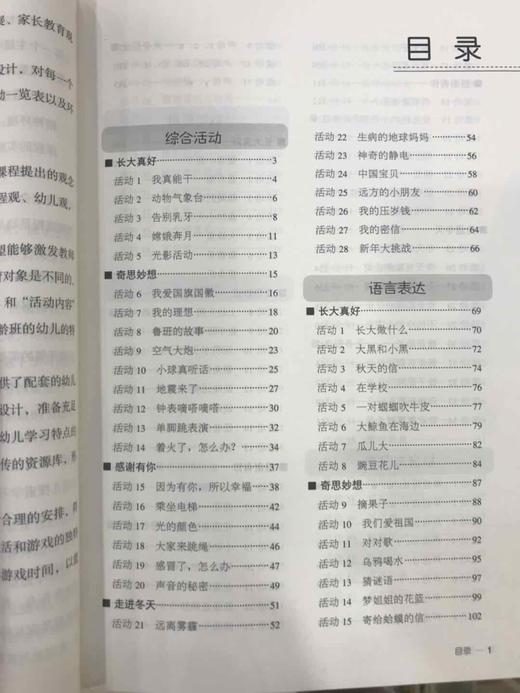 、家长教育观
设计，对每一个
动一览表以及环
课程提出的观念
程观、幼儿观，
望能够激发教师
对象是不同的，
和“活动内容”
龄班的幼儿的特
供了配套的幼儿
设计，准备充足
幼儿学习特点的
传的资源库，形
合理的安排，
活和游戏的独特
游戏时间，以
目 录
综合活动
■ 长大真好 3
活动 1 我真能干 4
活动 2 动物气象台 6
活动 3 告别乳牙 8
活动 4 嫦娥奔月 11
活动 5 光影活动 13
■ 奇思妙想 15
活动 6 我爱国旗国徽 16
活动 7 我的理想 18
活动 8 鲁班的故事 20
活动 9 空气大炮 23
活动 10 小球真听话 25
活动 11 地震来了 27
活动 12 钟表嘀嗒嘀嗒 30
活动 13 单脚跳表演 32
活动 14 着火了，怎么办？ 34
■ 感谢有你 37
活动 15 因为有你，所以幸福 38
活动 16 乘坐电梯 42
活动 17 光的颜色 44
活动 18 大家来跳绳 46
活动 19 感冒了，怎么办 47
活动 20 声音的秘密 49
■ 走进冬天 51
活动 21 远离雾霾 52
活动 22 生病的地球妈妈 54
活动 23 神奇的静电 56
活动 24 中国宝贝 58
活动 25 远方的小朋友 60
活动 26 我的压岁钱 62
活动 27 我的密信 64
活动 28 新年大挑战 66
语言表达
■ 长大真好 69
活动 1 长大做什么 70
活动 2 大黑和小黑 72
活动 3 秋天的信 74
活动 4 在学校 76
活动 5 一对蝈蝈吹牛皮 77
活动 6 大鲸鱼在海边 79
活动 7 瓜儿大 82
活动 8 豌豆花儿 84
■ 奇思妙想 87
活动 9 摘果子 88
活动 10 我们爱祖国 90
活动 11 对对歌 92
活动 12 乌鸦喝水 95
活动 13 猜谜语 97
活动 14 梦姐姐的花篮 99
活动 15 寄给蛤蟆的信 102
目录 — 1